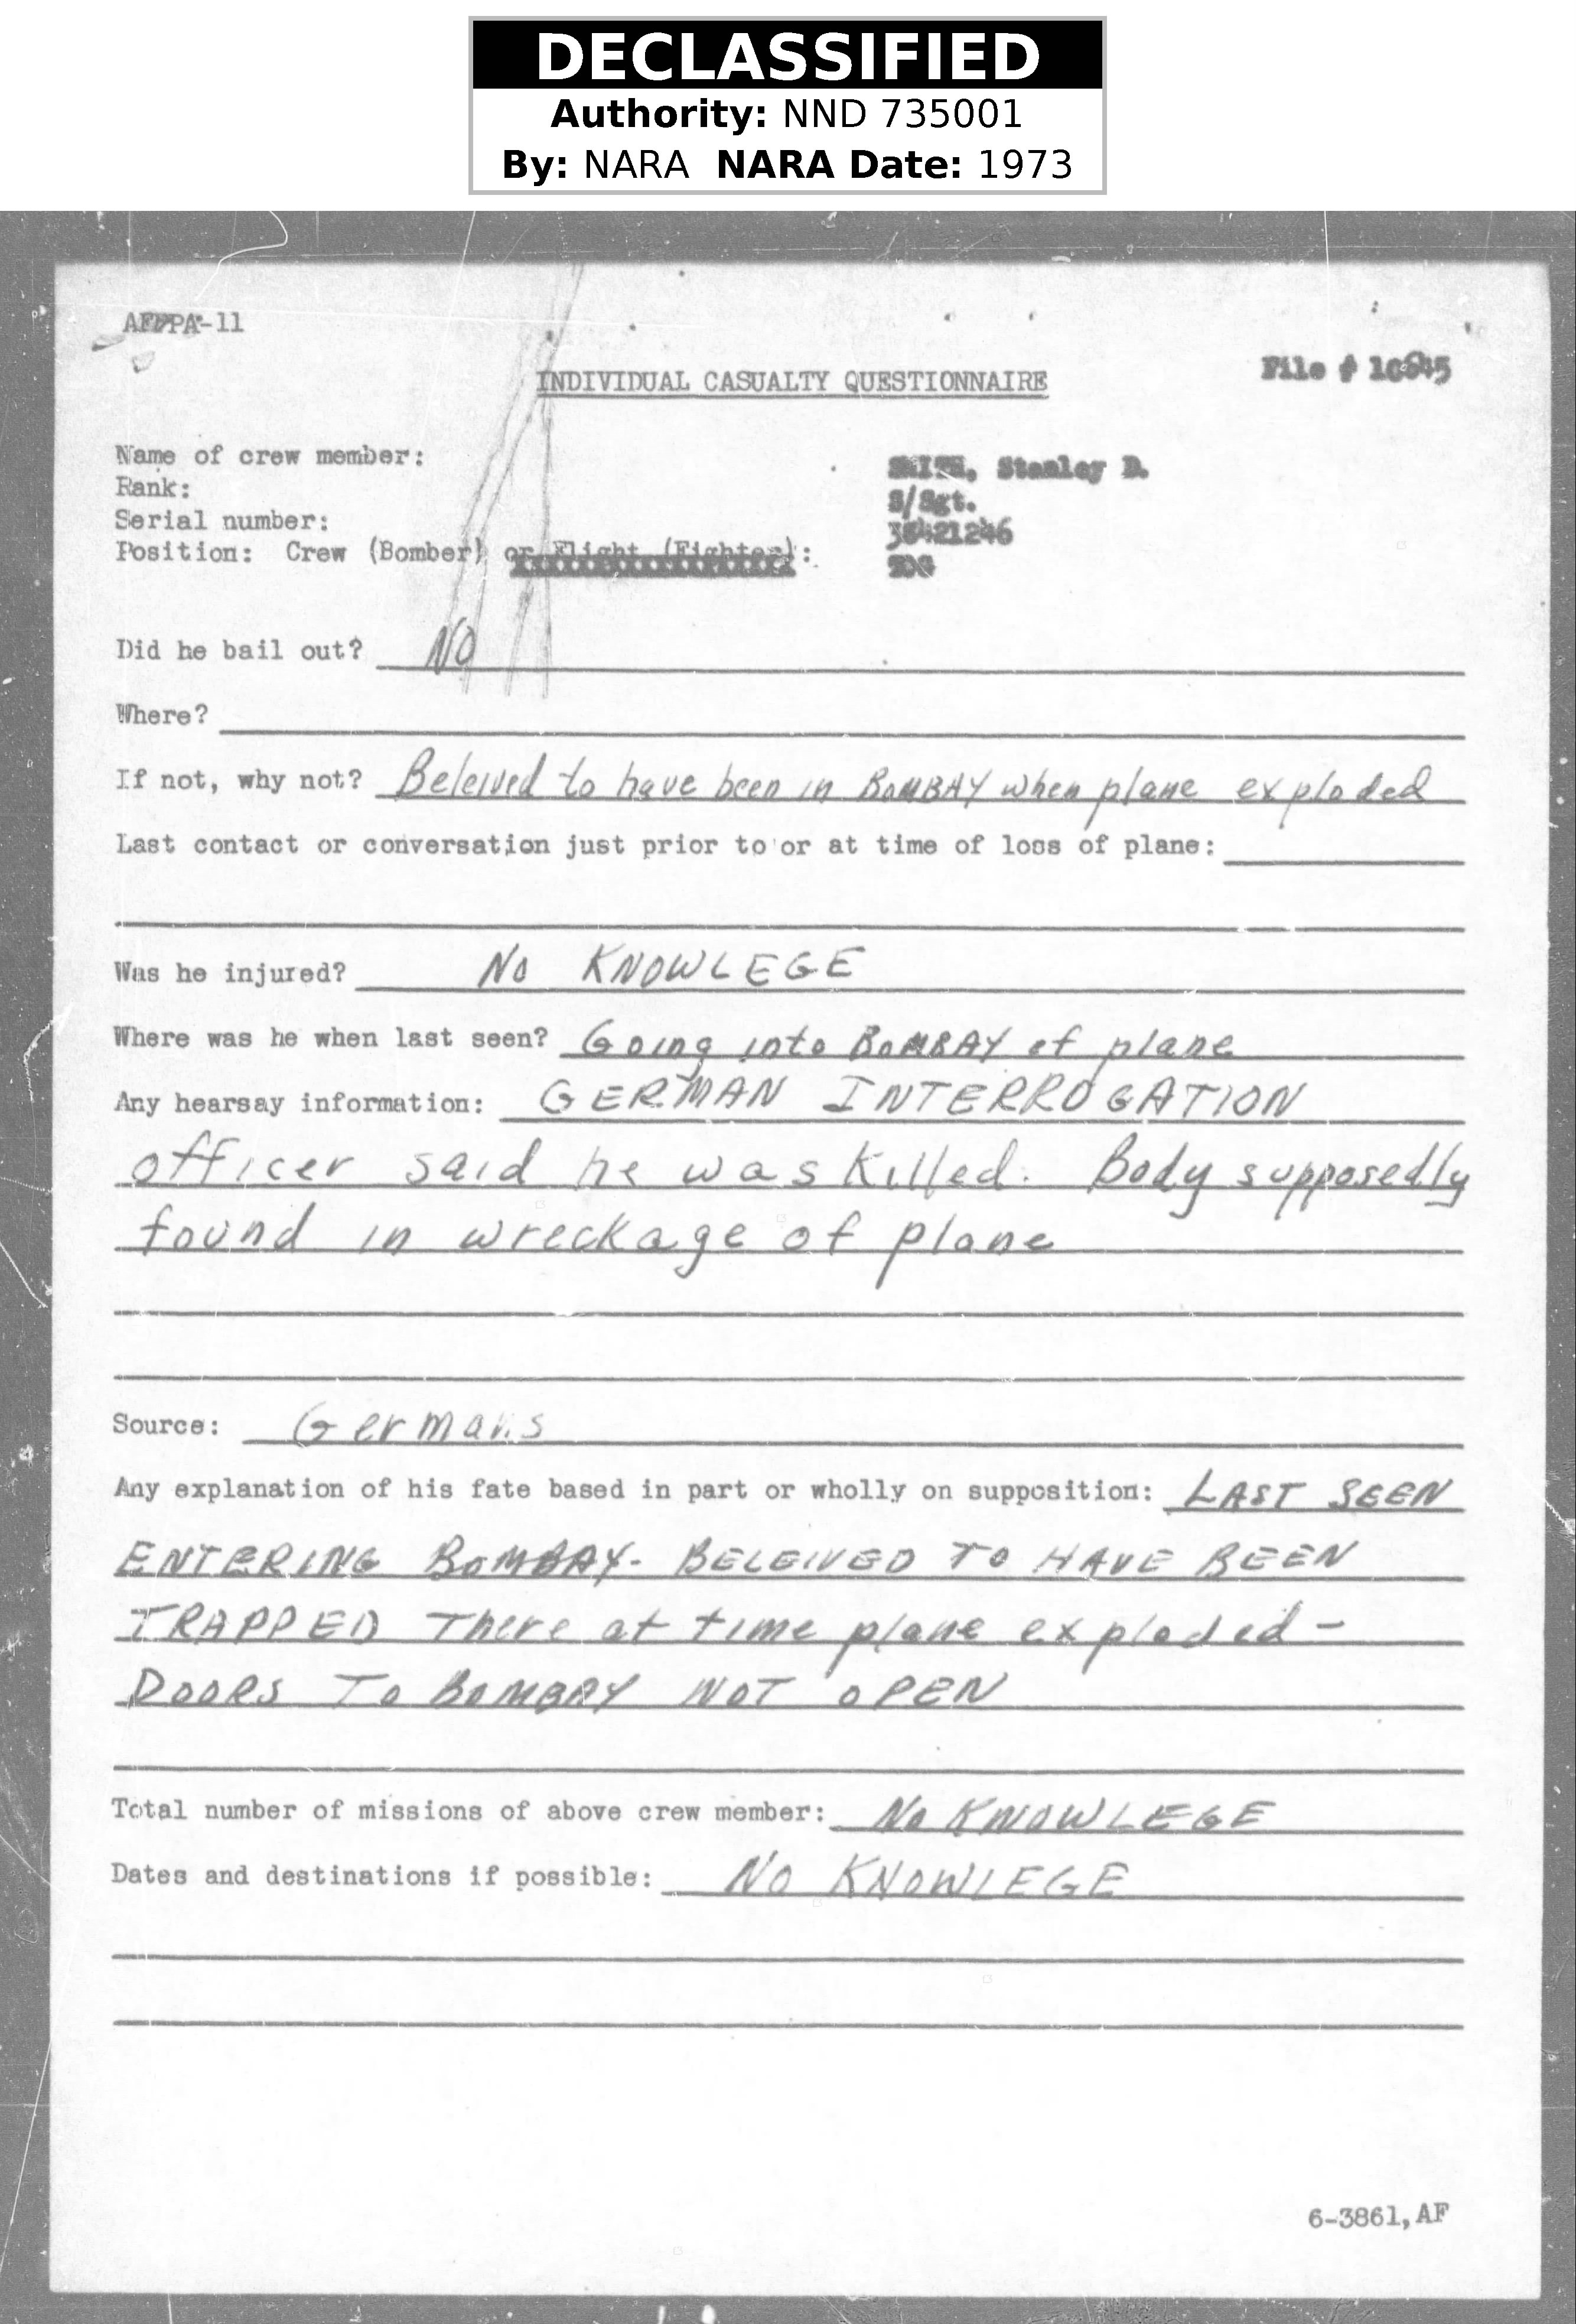 DECLASSIFIED
Authority: NND 735001
By: NARA NARA Date: 1973
AFPPA-11
INDIVIDUAL CASUALTY QUESTIONNAIRE
File #
Name of crew member: SMITH, Stanley D.
Rank: S/Sgt.
Serial number: 38421246
Position: Crew (Bomber) or Flight (Fighter):
Did he bail out? NO
Where?
If not, why not? Beleived to have been in BOMBAY when plane exploded
Last contact or conversation just prior to or at time of loss of plane:
Was he injured? No KNOWLEGE
Where was he when last seen? Going into BOMBAY of plane
Any hearsay information: GERMAN INTERROGATION
officer said he was killed. Body supposedly
found in wreckage of plane
Source: Germans
Any explanation of his fate based in part or wholly on supposition: LAST SEEN
ENTERING BOMBAY- BELEIVED TO HAVE BEEN
TRAPPED There at time plane exploded -
DOORS TO BOMBAY NOT OPEN
Total number of missions of above crew member: No KNOWLEGE
Dates and destinations if possible: NO KNOWLEGE
6-3861, AF